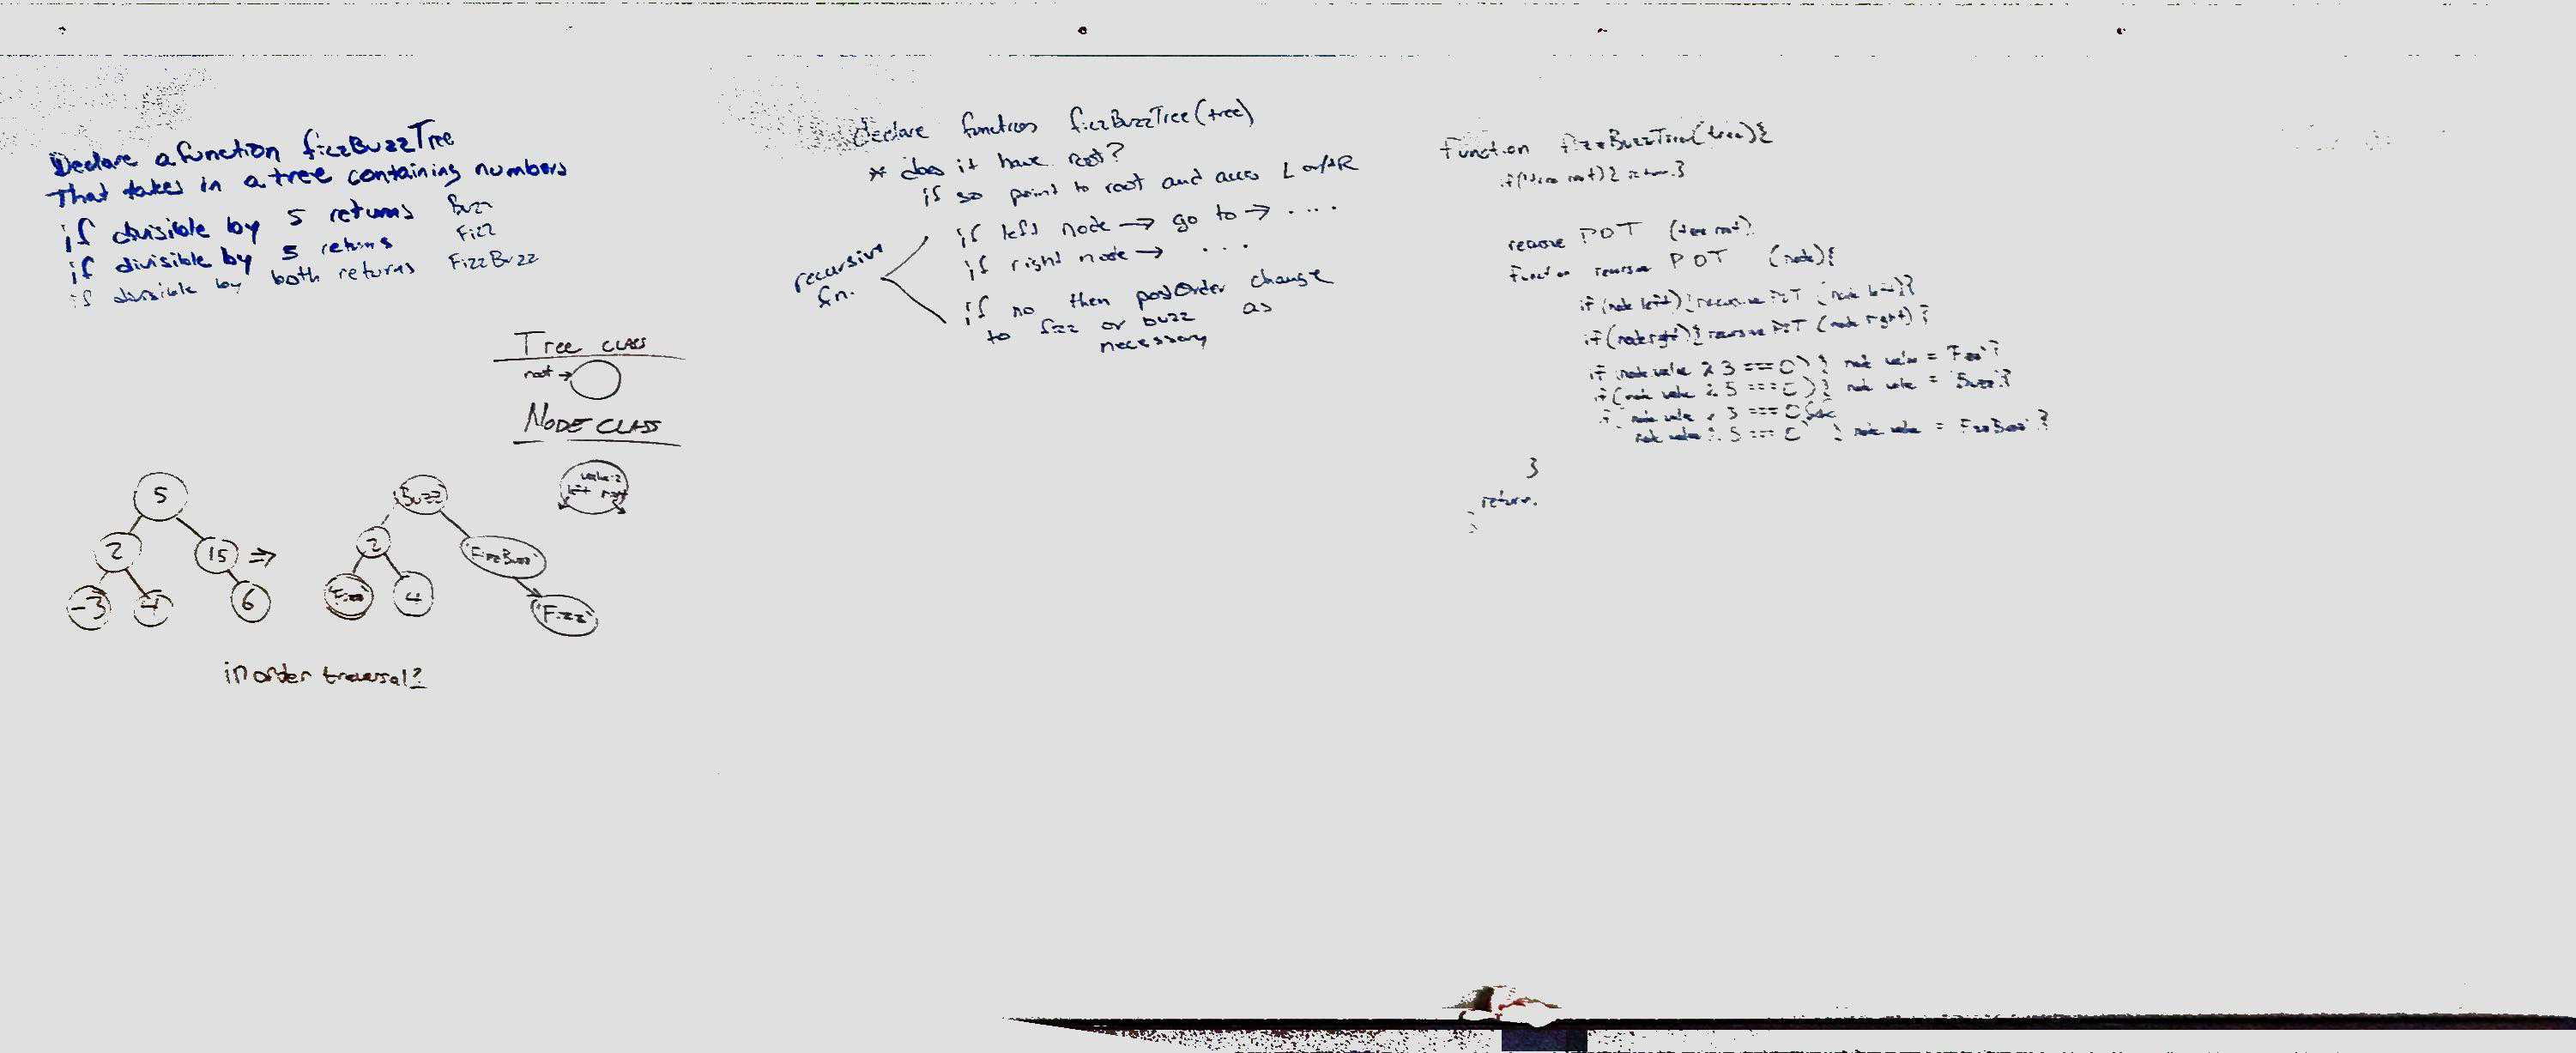 Declare a function fizzBuzzTree
That takes in a tree containing numbers
if divisible by 5 returns Buzz
if divisible by 5 returns Fizz
if divisible by both returns FizzBuzz
Tree CLASS
root →
NODE CLASS
value:2
left right
5
2
15 ⇒
-3
4
6
Buzz
2
'FizzBuzz'
'Fizz'
4
'Fizz'
in order traversal?
declare function fizzBuzzTree(tree)
* does it have root?
if so point to root and access L and/R
recursive fn.
if left node → go to → ....
if right node → ...
if no then postOrder change
to fizz or buzz as
necessary
function fizzBuzzTree(tree){
if(!tree.root){return}
POT (tree.root)
function recursive POT (node){
if(node.left){recursive POT (node.left)}
if(node.right){recursive POT (node.right)}
if node.value % 3 === 0) } node value = 'Fizz'}
if(node value % 5 === 0)} node value = 'Buzz'}
if node value % 3 === 0 &&
node value % 5 === 0 } node value = 'FizzBuzz'}
}
return.
}